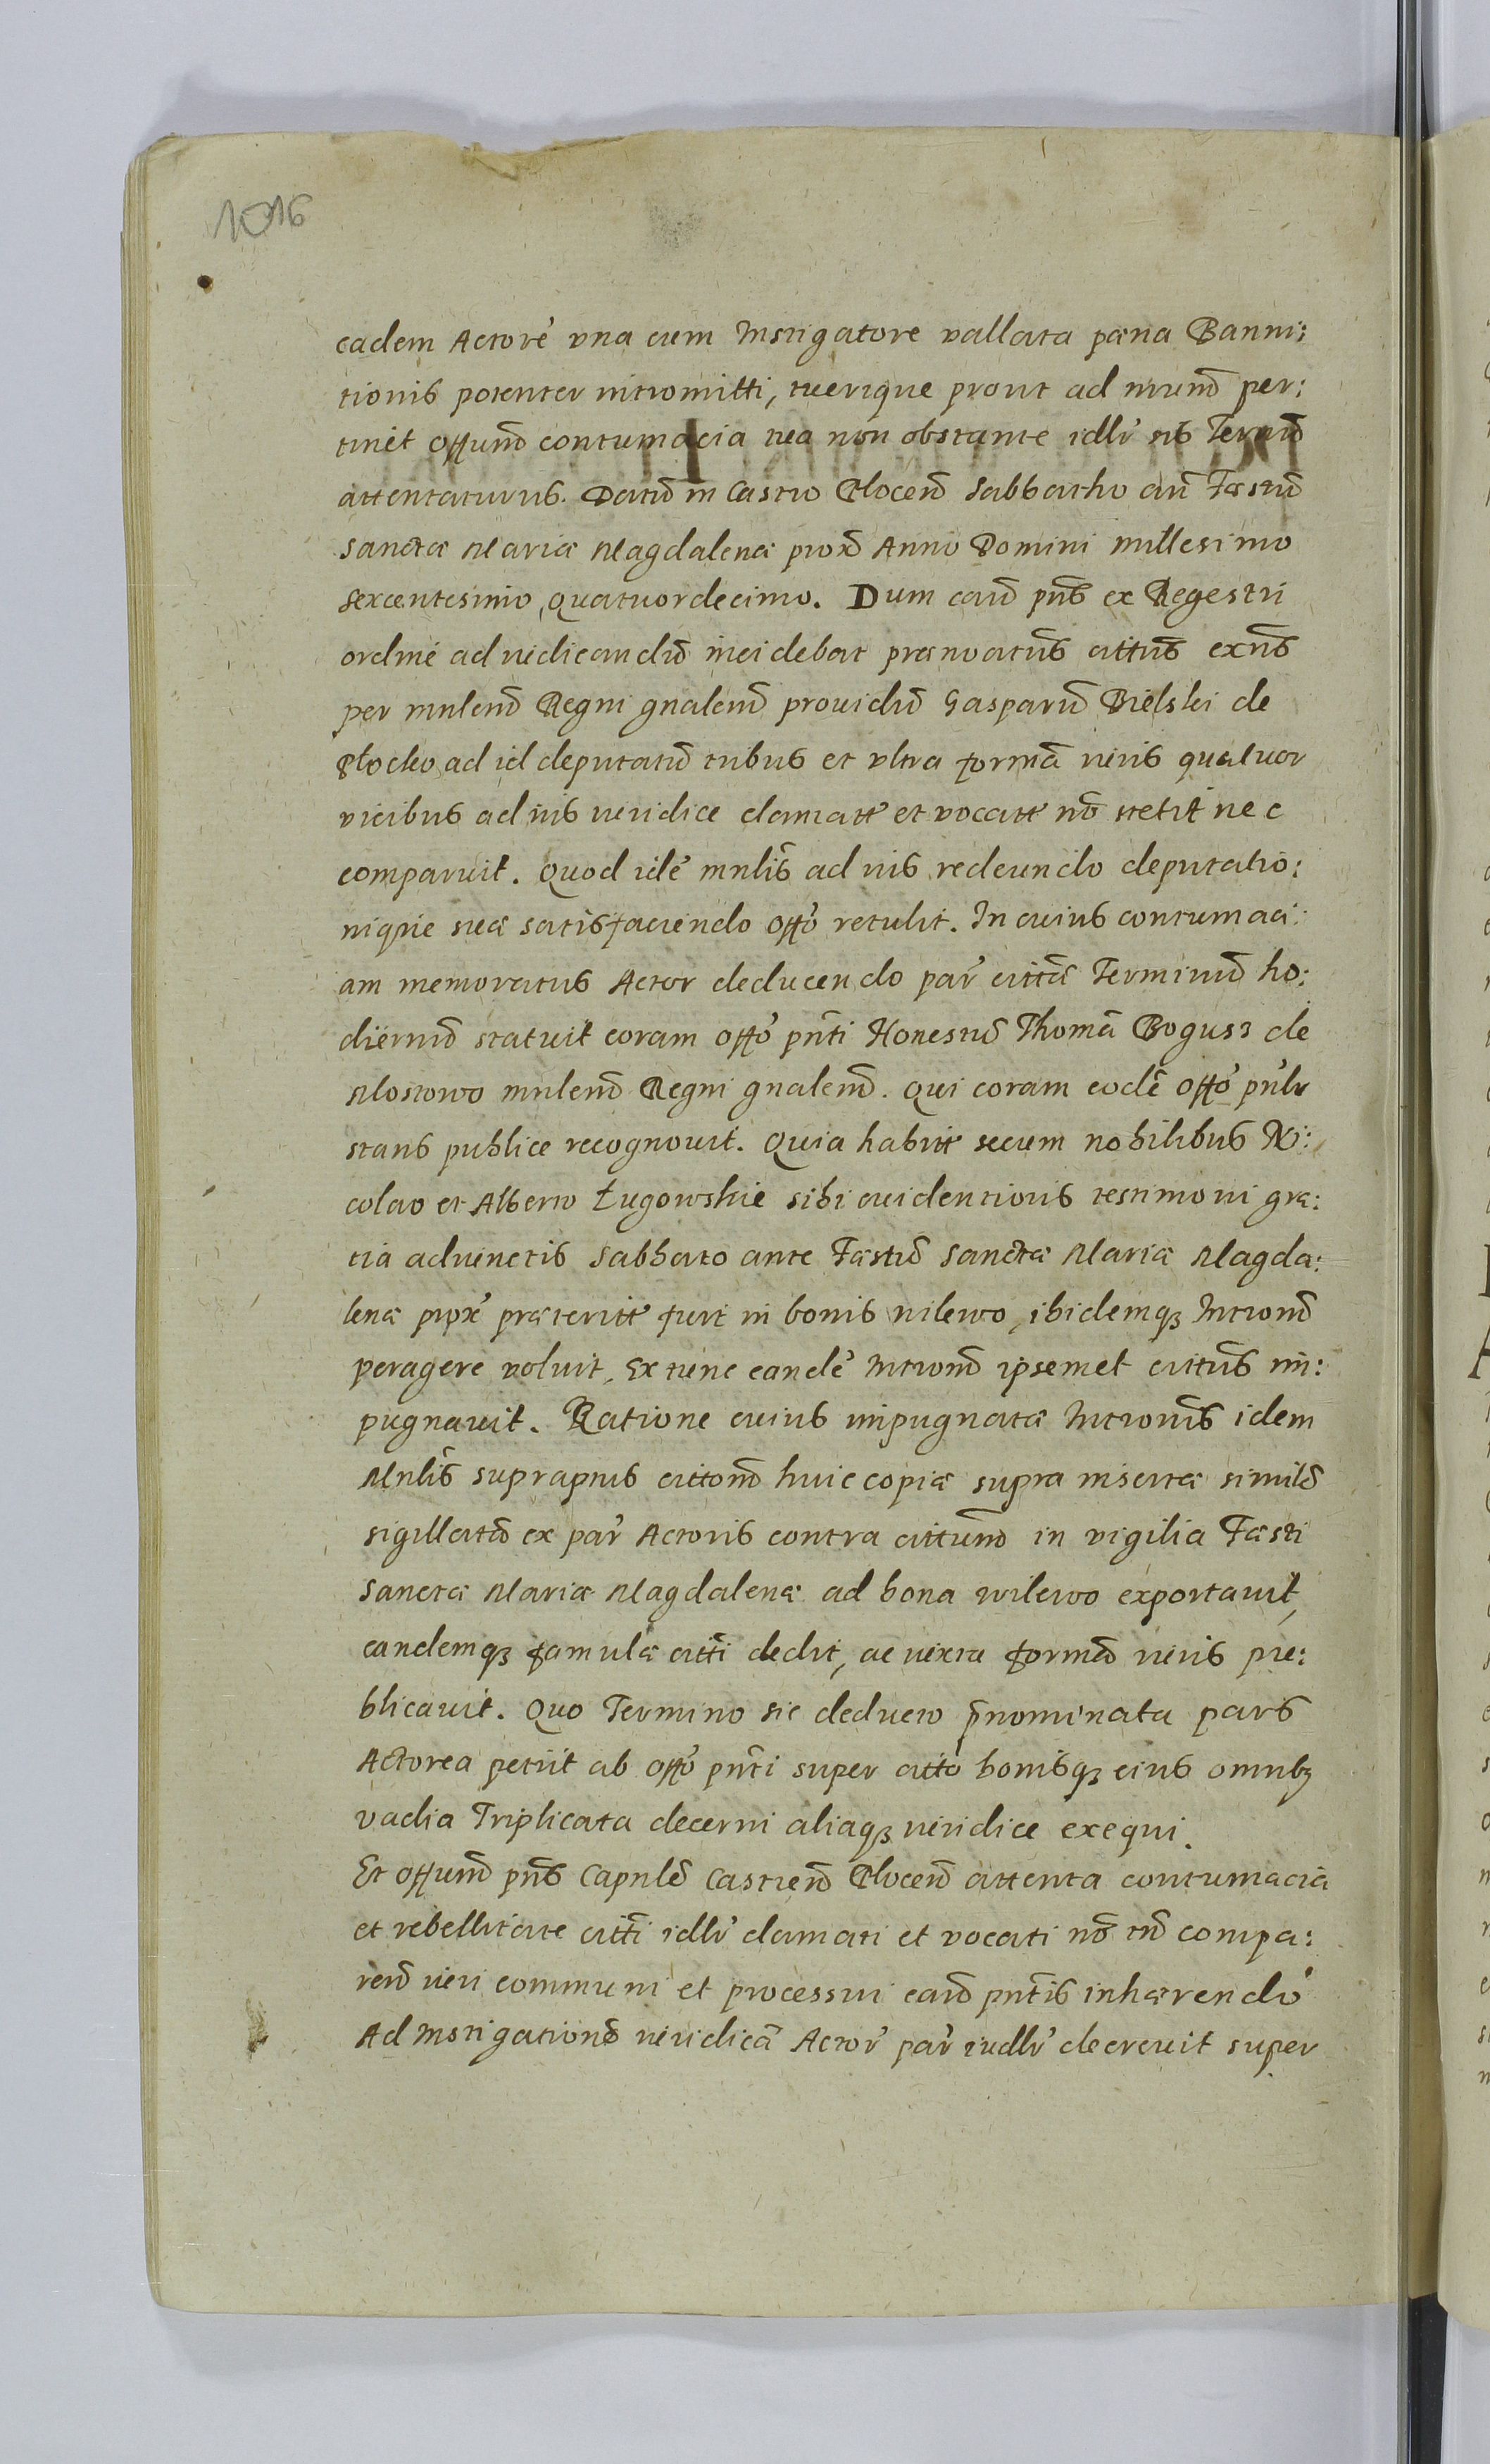 1016
eadem Actore͂ vna cum Instigatore vallata pæna Banni:
tionis potenter intromitti, tuerique prout ad munꝰ per:
tinet Offium̄ contumacia tua non obstante idlr̄ ns̄ Termīn
attentaturus. Datū in Castro Plocen̄ Sabbatho an̄ Fæstū
Sanctæ Mariæ Magdalenæ prox̄ Anno Domini Millesimo
sexcentesimo quatuordecimo. Dum cau͞ pn̄s ex Regestri
ordine ad iudicandū incidebat prænoatus cittūs exn̄s
per mnlem̄ Regni gn̄alem̄ prouidū Gasparū Bielski de
Płocko ad id deputatū tribus et vltra formā iuris quatuor
vicibus ad ius iuridice clamatt et vocatt nō stetit nec
comparuit. Quod idē mnlis̄ ad ius redeundo deputatio:
nique suæ satisfaciendo Offō retulit. In cuius contumaci:
am memoratus Actor deducendo par̄ cittā Terminū ho:
diernū statuit coram offō pn̄ti Honestū Thomā Bogusz de
Mostowo mnlem̄ Regni gn̄alem̄. Qui coram eodē Offō pn̄lr
stans publice recognouit. Quia habitt secum nobilibus Ni:
colao et Alberto Ługowskie sibi euidentioris testimonii gra:
tia adiunctis Sabbato ante Fæstū Sanctæ Mariæ Magda:
lenæ prox̄ præteritt fuit in bonis wilewo, ibidemqꝫ Intronē
peragere voluit, Ex tunc eandē Intronē ipsemet cittūs im:
pugnauit. Ratione cuius impugnatæ Intronis̄ idem
Mnlis̄ supraptus cittonē huic copiæ supra insertæ similē
sigillatā ex par̄ Actoris contra cittum̄ in vigilia Fæsti
Sanctæ Mariæ Magdalenæ ad bona wilewo exportauit,
eandemqꝫ famulæ citti̅ dedit, ac iuxta formā iuris pu:
blicauit. Quo Termino sic deducto p̄nominata pars
Actorea petiit ab offō pn̄ti super citto bonisqꝫ eius omnibꝫ
vadia Triplicata decerni aliaqꝫ iuridice exequi.
Et offium̄ pn̄s Capnlē Castren̄ Plocen̄ attenta contumacia
et rebellitate citti̅ idlr̄ clamati et vocati nō tn̄ compa:
ren̄ iuri communi et processui cau͞ pn̄tis inhærendo
Ad Instigationē iuridicā Actor̄ par̄ iudlr̄ decreuit super